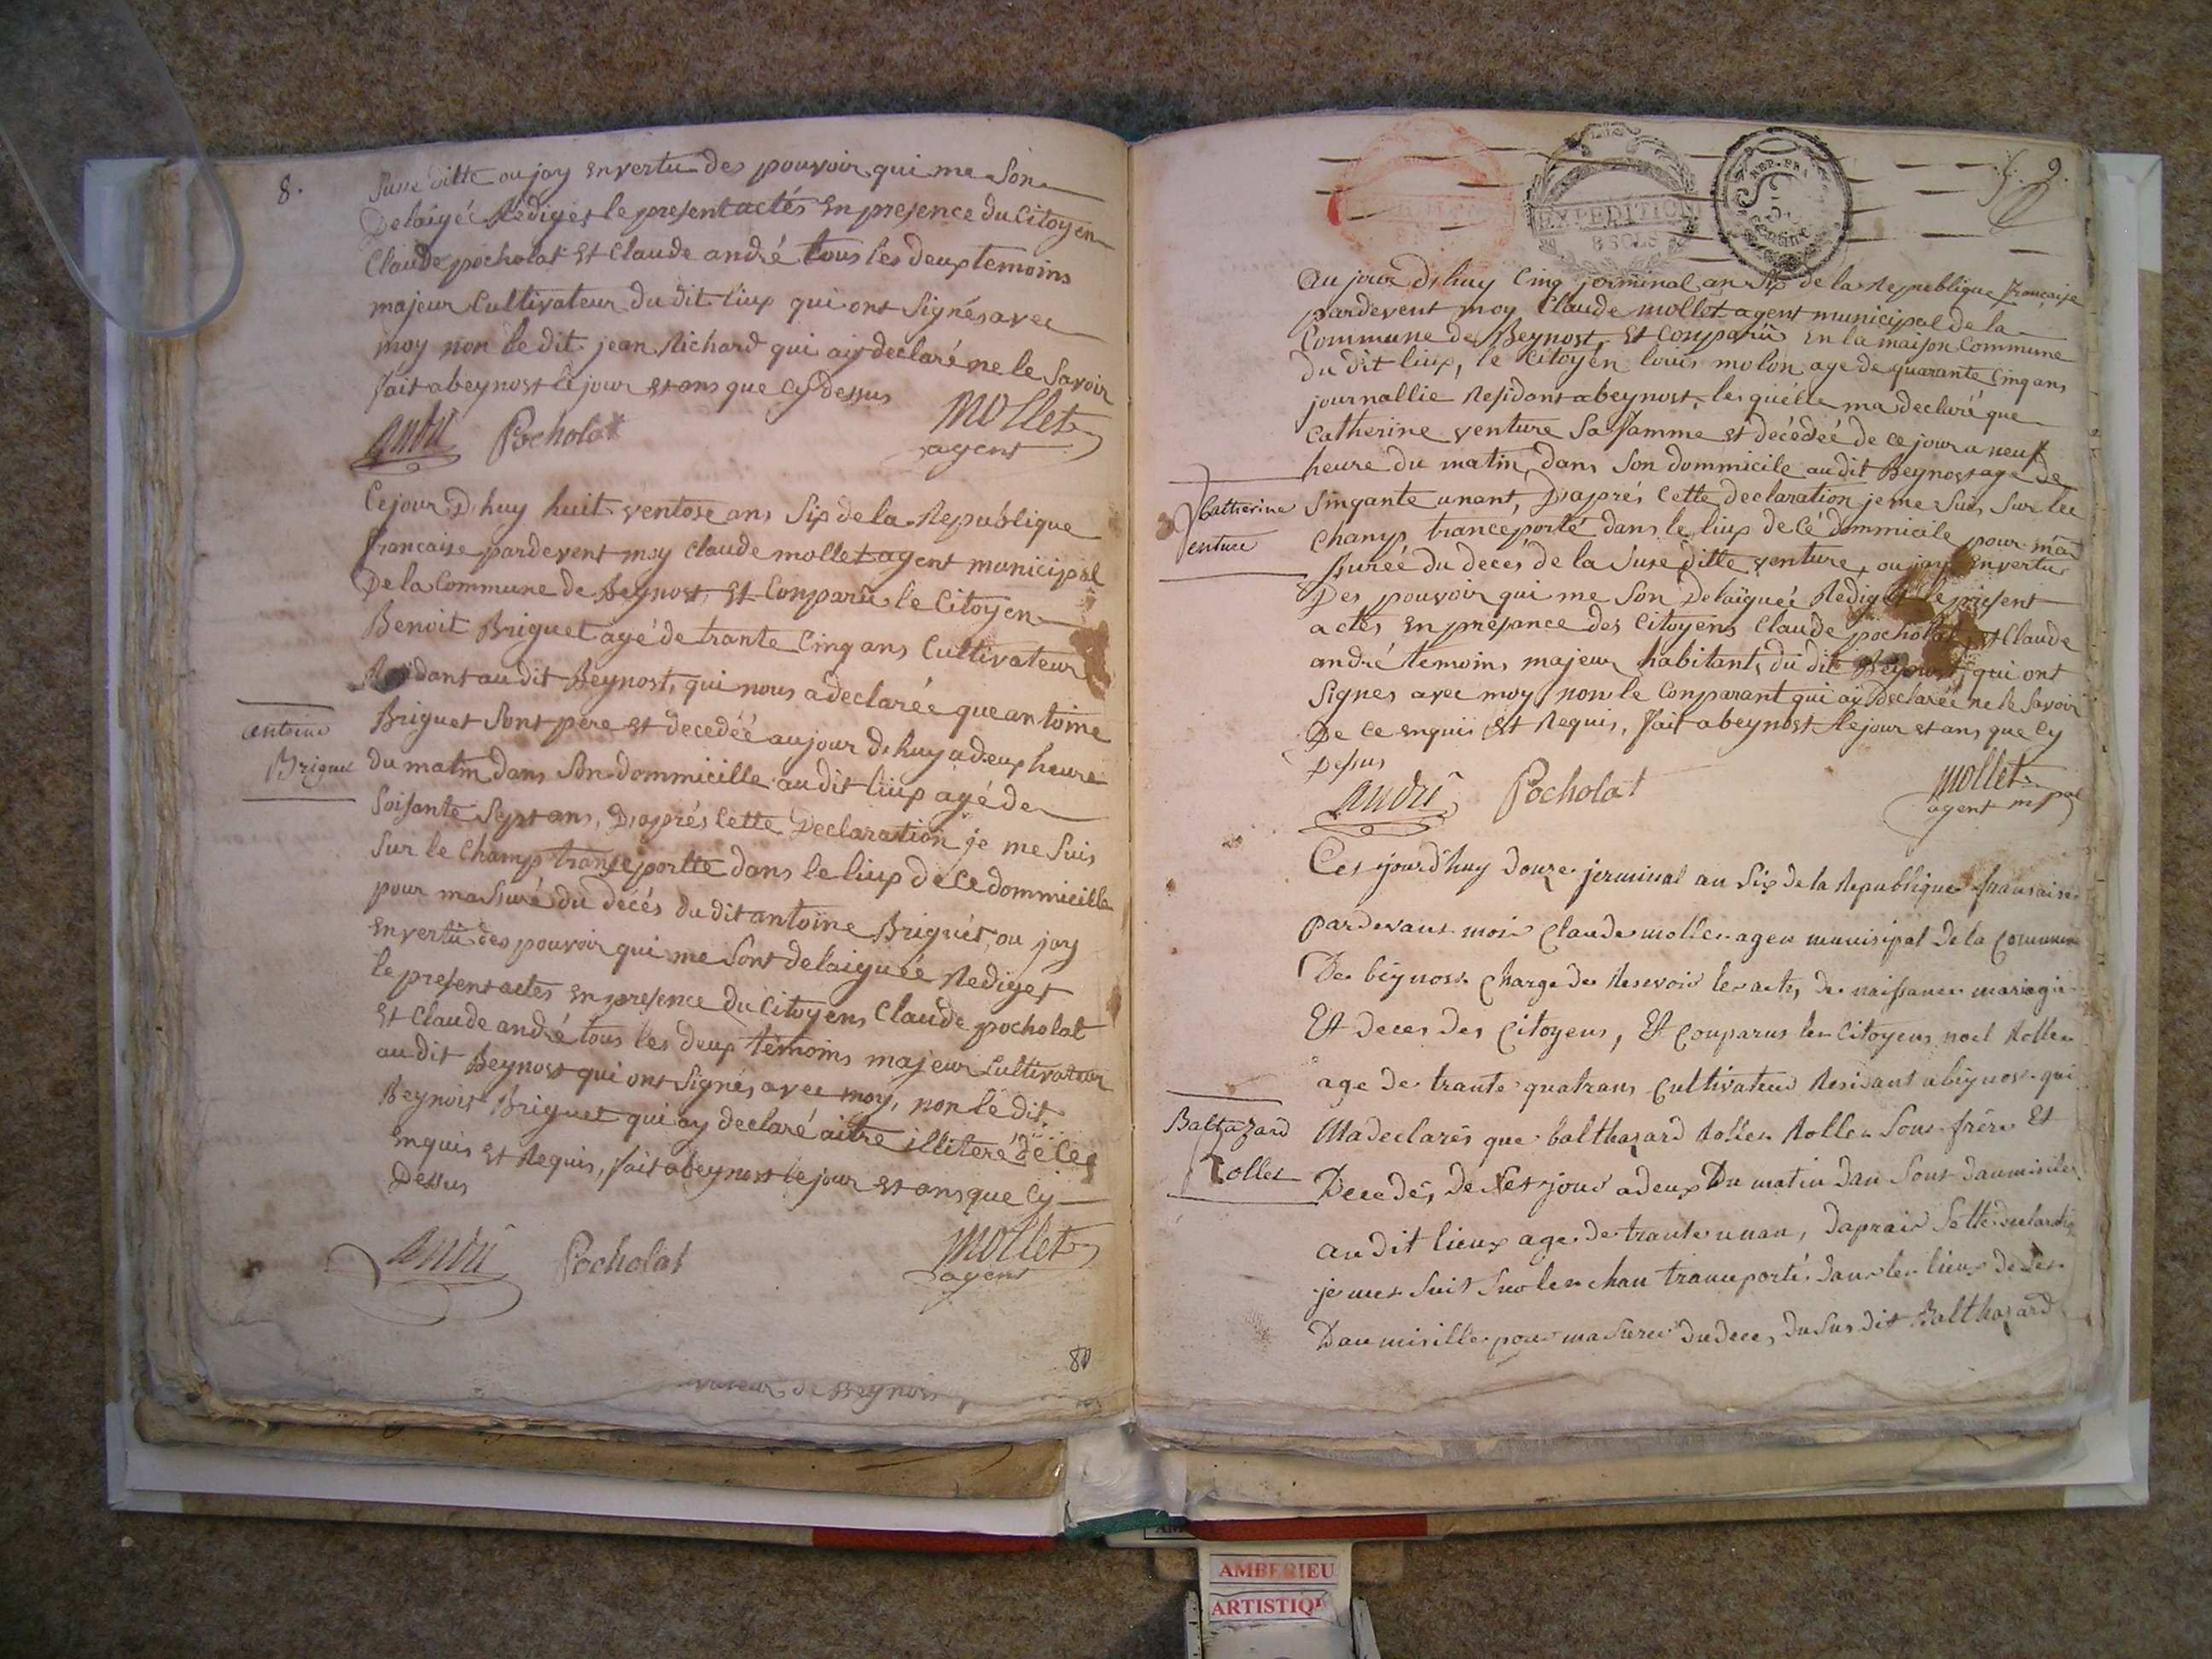 8.
Suse ditte ou jay en vertu des pouvoir qui me Son
Delaigée Rédiger le present actés en presence du Citoyen
Claude pocholat et Claude andré tous les deux temoins
majeur Cultivateur du dit liux qui ont Signés avec
moy non le dit jean Richard qui ay declaré ne le Savoir
fait a beynost le jour et ans que Cy Dessus
andré Pocholat Mollet
agent
Ce jour D'huy huit ventose ans Six de la Republique
francaise pardevent moy Claude mollet agent municipal
De la Commune de Beynost, et Conparû le Citoyen
Benoit Briguet agé de trante Cinq ans Cultivateur
Residant au dit Beynost, qui nous a declarée que antoine
Briguet Sont père et decedéé aujour d'huy a deux heure
antoine
Briguet
du matin dans Son dommicille au dit liux agé de
Soisante Sept ans, D'aprés Cette Declaration je me Suis
Sur le Champ transeportte dans le liux de Ce dommicille
pour massuré du decés du dit antoine Briguet, ou jay
en vertu des pouvoir qui me Sont delaiguée Rediger
le present actes en presence du Citoyens Claude pocholat
et Claude andré tous les deux témoins majeur Cultivateur
au dit Beynost qui ont Signés avec moy, non le dit
Beynoit Briguet qui ay declaré aitre illiteré de Ces
enquis et Requis, fait a beynost le jour et ans que Cy
Dessus
andré Pocholat Mollet
agent
80
de Beynost
9.
EXPEDITION
8 SOLS
REP. FRA.
5
Centime
Au jour D'huy Cinq jerminal an Six de la Republique française
pardevent moy Claude mollet agent municipal de la
Commune de Beynost, et Conparû en la maison Commune
du dit liux, le Citoyen louis molon age de quarante Cinq ans
journallié Residant a beynost, lequélle ma declaré que
Catherine venture Sa famme et décédéé de ce jour a neuf
heure du matin, dans Son dommicile au dit Beynost age de
Catherine
venture
Sinqante unant, D'aprés Cette declaration je me Suis Sur lee
Champ tranceporté dans le liux de Cé dommicile pour m'as
Suréé du decés de la Suse ditte venture, ou jay en vertu
Des pouvoir qui me Son Delaiguéé Rediger le present
actés en présance des Citoyens Claude pocholat, et Claude
andré temoins majeur habitants du dit Beynost, qui ont
Signes avec moy non le Conparant qui ay Declaréé ne le Savoir
De Ce enquis et Requis, fait a beynost le jour et ans que Cy
Dessus
andré Pocholat Mollet
agent mpal
Ces jourd'huy douze jerminal an Six de la Republique fransaise
pardevant moi Claude mollet agen munisipal de la Commune
De beynost Charge de Resevoir les acte, de naissance mariagie
Et deces des Citoyens, Et Conparus le Citoyens noel Rollet
age de trante quatrans Cultivateur Residant a beynost qui
Balthazard
Rollet
Ma declarés que balthazard Rollet Sont frère Et
Decedés, de Set jour a deux Du matin dan Sont daumisile
au dit lieux age de trante unan, daprais Sette declaration
je mes Suit Sur le chan tranceporté dans le lieux de Ses
Daumisille pour masurer du deces, du Sus dit Balthazard
AMBERIEU
ARTISTIQ